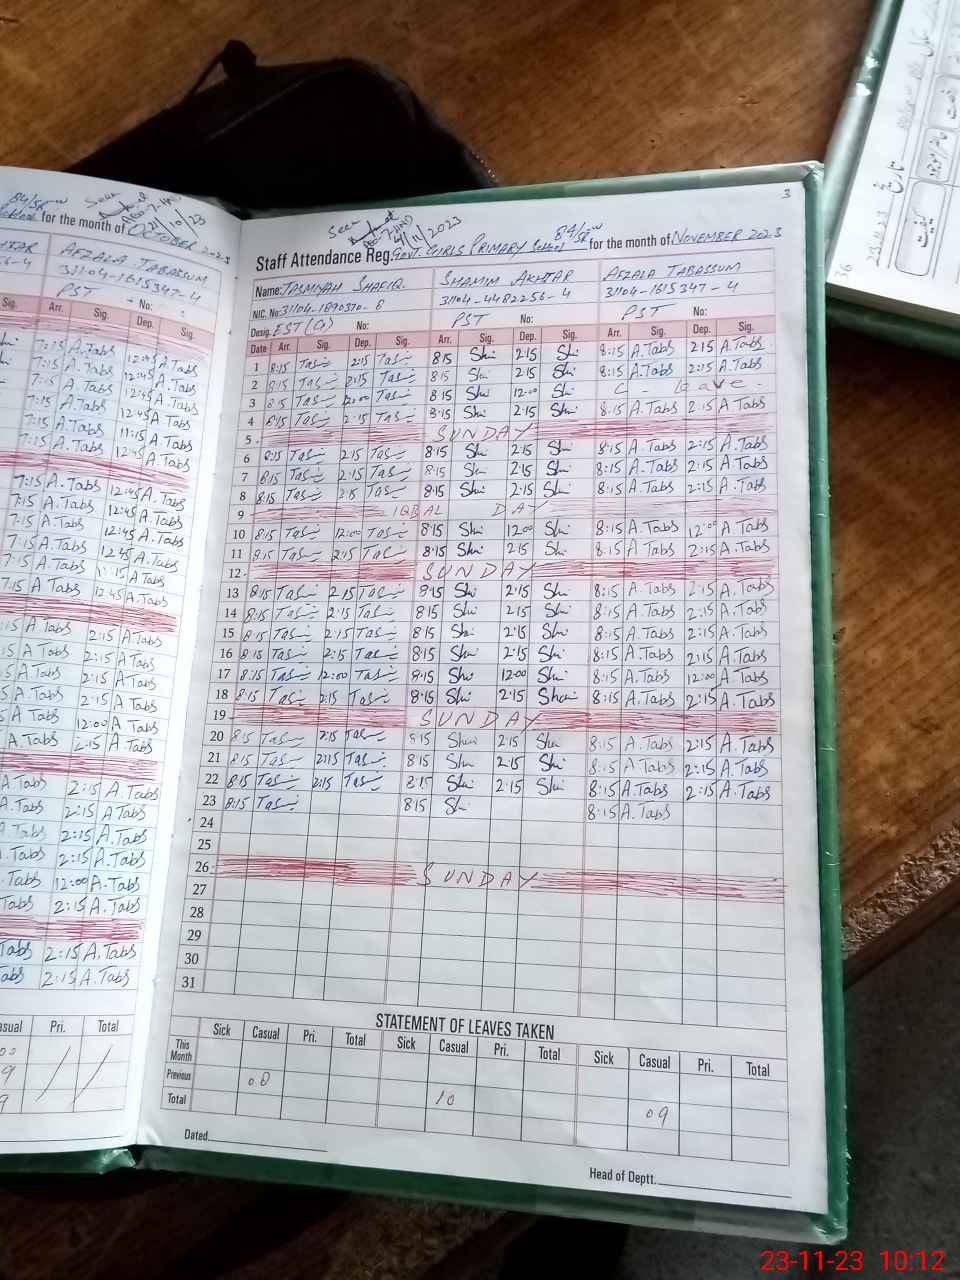 84/5R
Seen
21/10/23
for the month of OCTOBER 2023
AFZALA TABASSUM
31104-1615347-4
PST No:
Sig. Arr. Sig. Dep. Sig.
7:15 A.Tabs 12:45 A.Tabs
7:15 A.Tabs 12:45 A.Tabs
7:15 A.Tabs 12:45 A.Tabs
7:15 A.Tabs 12:45 A.Tabs
7:15 A.Tabs 11:15 A.Tabs
7:15 A.Tabs 12:45 A.Tabs
7:15 A.Tabs 12:45 A.Tabs
7:15 A.Tabs 12:45 A.Tabs
7:15 A.Tabs 12:45 A.Tabs
7:15 A.Tabs 12:45 A.Tabs
7:15 A.Tabs 11:15 A.Tabs
7:15 A Tabs 12:45 A.Tabs
A Tabs 2:15 A Tabs
A Tabs 2:15 A Tabs
A Tabs 2:15 A Tabs
A Tabs 2:15 A Tabs
A Tabs 12:00 A Tabs
A.Tabs 2:15 A.Tabs
A.Tabs 2:15 A.Tabs
A.Tabs 2:15 A.Tabs
A.Tabs 2:15 A.Tabs
A.Tabs 2:15 A.Tabs
Tabs 12:00 A.Tabs
A.Tabs 2:15 A.Tabs
Tabs 2:15 A.Tabs
Tabs 2:15 A.Tabs
Casual Pri. Total
3
Seen
4/11/2023
84/5R
Staff Attendance Reg. GOVT. GIRLS PRIMARY School for the month of NOVEMBER 2023
Name: TASMIYAH SHAFIQ. SHAMIM AKHTAR AFZALA TABASSUM
NIC. No: 31104-1890370-8 31104-4482256-4 31104-1615347-4
Desig. EST(G) No: PST No: PST No:
Date Arr. Sig. Dep. Sig. Arr. Sig. Dep. Sig. Arr. Sig. Dep. Sig.
1 8:15 Tas 2:15 Tas 8:15 Shi 2:15 Shi 8:15 A.Tabs 2:15 A.Tabs
2 8:15 Tas 2:15 Tas 8:15 Shi 2:15 Shi 8:15 A.Tabs 2:15 A.Tabs
3 8:15 Tas 12:00 Tas 8:15 Shi 12:00 Shi C - leave -
4 8:15 Tas 2:15 Tas 8:15 Shi 2:15 Shi 8:15 A.Tabs 2:15 A.Tabs
5 SUNDAY
6 8:15 Tas 2:15 Tas 8:15 Shi 2:15 Shi 8:15 A.Tabs 2:15 A.Tabs
7 8:15 Tas 2:15 Tas 8:15 Shi 2:15 Shi 8:15 A.Tabs 2:15 A.Tabs
8 8:15 Tas 2:15 Tas 8:15 Shi 2:15 Shi 8:15 A.Tabs 2:15 A.Tabs
9 IQBAL DAY
10 8:15 Tas 12:00 Tas 8:15 Shi 12:00 Shi 8:15 A.Tabs 12:00 A.Tabs
11 8:15 Tas 2:15 Tas 8:15 Shi 2:15 Shi 8:15 A.Tabs 2:15 A.Tabs
12 SUNDAY
13 8:15 Tas 2:15 Tas 8:15 Shi 2:15 Shi 8:15 A.Tabs 2:15 A.Tabs
14 8:15 Tas 2:15 Tas 8:15 Shi 2:15 Shi 8:15 A.Tabs 2:15 A.Tabs
15 8:15 Tas 2:15 Tas 8:15 Shi 2:15 Shi 8:15 A.Tabs 2:15 A.Tabs
16 8:15 Tas 2:15 Tas 8:15 Shi 2:15 Shi 8:15 A.Tabs 2:15 A.Tabs
17 8:15 Tas 12:00 Tas 8:15 Shi 12:00 Shi 8:15 A.Tabs 12:00 A.Tabs
18 8:15 Tas 2:15 Tas 8:15 Shi 2:15 Sham 8:15 A.Tabs 2:15 A.Tabs
19 SUNDAY
20 8:15 Tas 2:15 Tas 8:15 Shi 2:15 Shi 8:15 A.Tabs 2:15 A.Tabs
21 8:15 Tas 2:15 Tas 8:15 Shi 2:15 Shi 8:15 A.Tabs 2:15 A.Tabs
22 8:15 Tas 2:15 Tas 8:15 Shi 2:15 Shi 8:15 A.Tabs 2:15 A.Tabs
23 8:15 Tas 8:15 Shi 8:15 A.Tabs
24
25
26 SUNDAY
27
28
29
30
31
STATEMENT OF LEAVES TAKEN
Sick Casual Pri. Total Sick Casual Pri. Total Sick Casual Pri. Total
This Month
Previous 00 10 09
Total
Dated.
Head of Deptt.
23-11-23 10:12